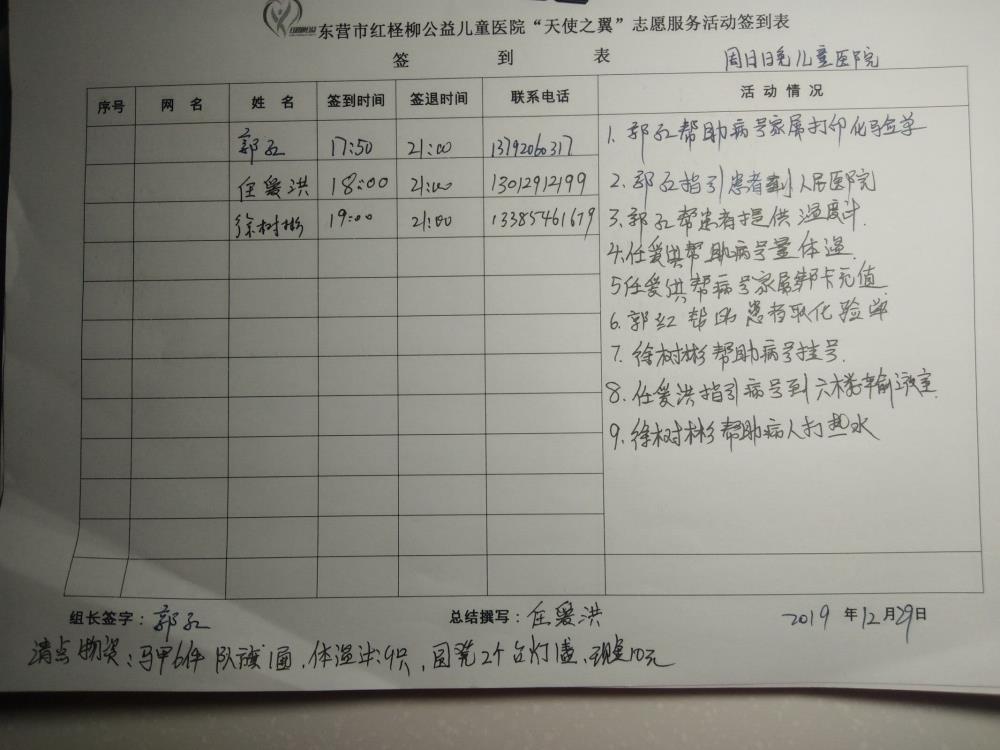 东营市红柽柳公益儿童医院“天使之翼”志愿服务活动签到表
签 到 表 周日日晚儿童医院
序号 网 名 姓 名 签到时间 签退时间 联系电话 活 动 情 况
郭红 17:50 21:00 13792060317
任爱洪 18:00 21:00 13012912199
徐树彬 19:00 21:00 13385461679
1. 郭红帮助病号家属打印化验单
2. 郭红指引患者到人民医院
3. 郭红帮患者提供温度计.
4. 任爱洪帮助病号量体温.
5 任爱洪帮病号家属帮卡充值
6. 郭红帮助患者取化验单
7. 徐树彬帮助病号挂号.
8. 任爱洪指引病号到六楼输液室.
9. 徐树彬帮助病人打热水
组长签字: 郭红 总结撰写: 任爱洪 2019 年 12 月 29 日
清点物资: 马甲6件 队旗1面, 体温计9只, 圆凳2个 台灯1盏, 现金10元